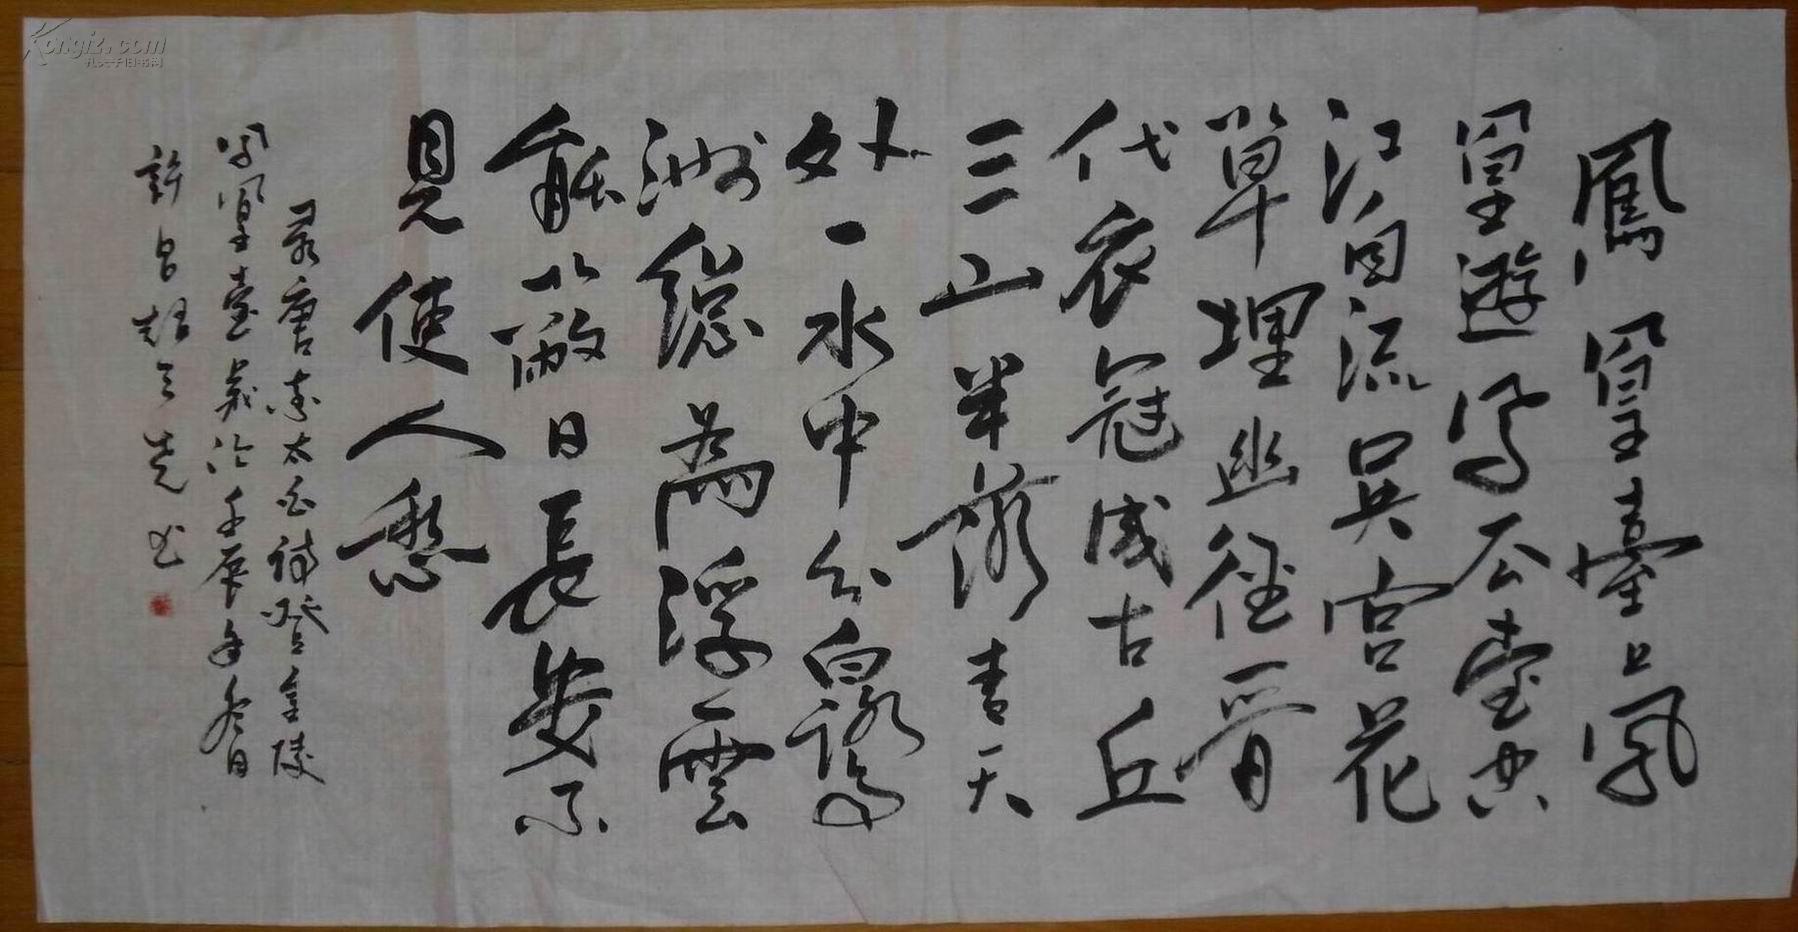 鳳凰臺上鳳
凰遊鳳去臺空
江自流吳宮花
草埋幽徑晉
代衣冠成古丘
三山半落青天
外一水中分白鷺
洲總為浮雲
能蔽日長安不
見使人愁
录唐李太白詩登金陵
鳳凰臺 於壬辰年冬日
許昌 書
Kongfz.com
孔夫子旧书网